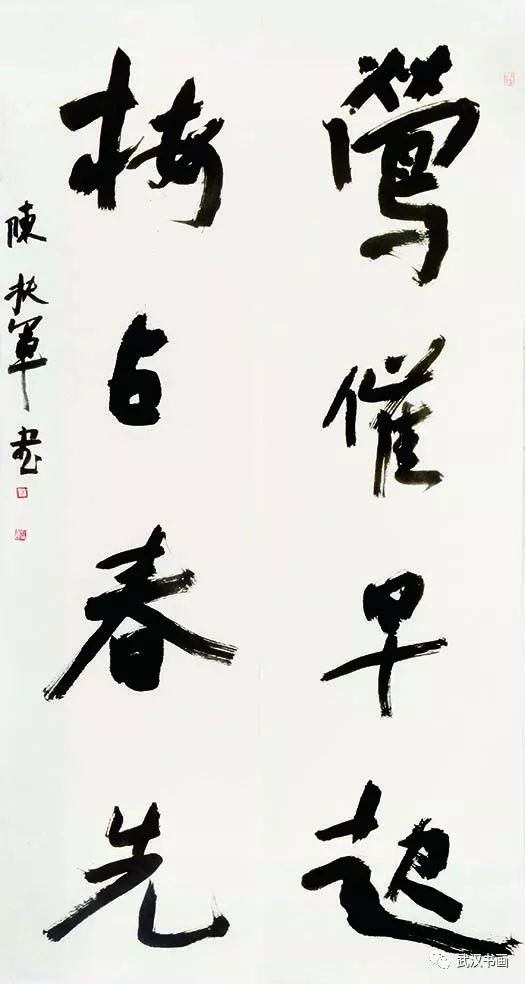 鶯催早起
梅占春先
陳秋軍書
武汉书画